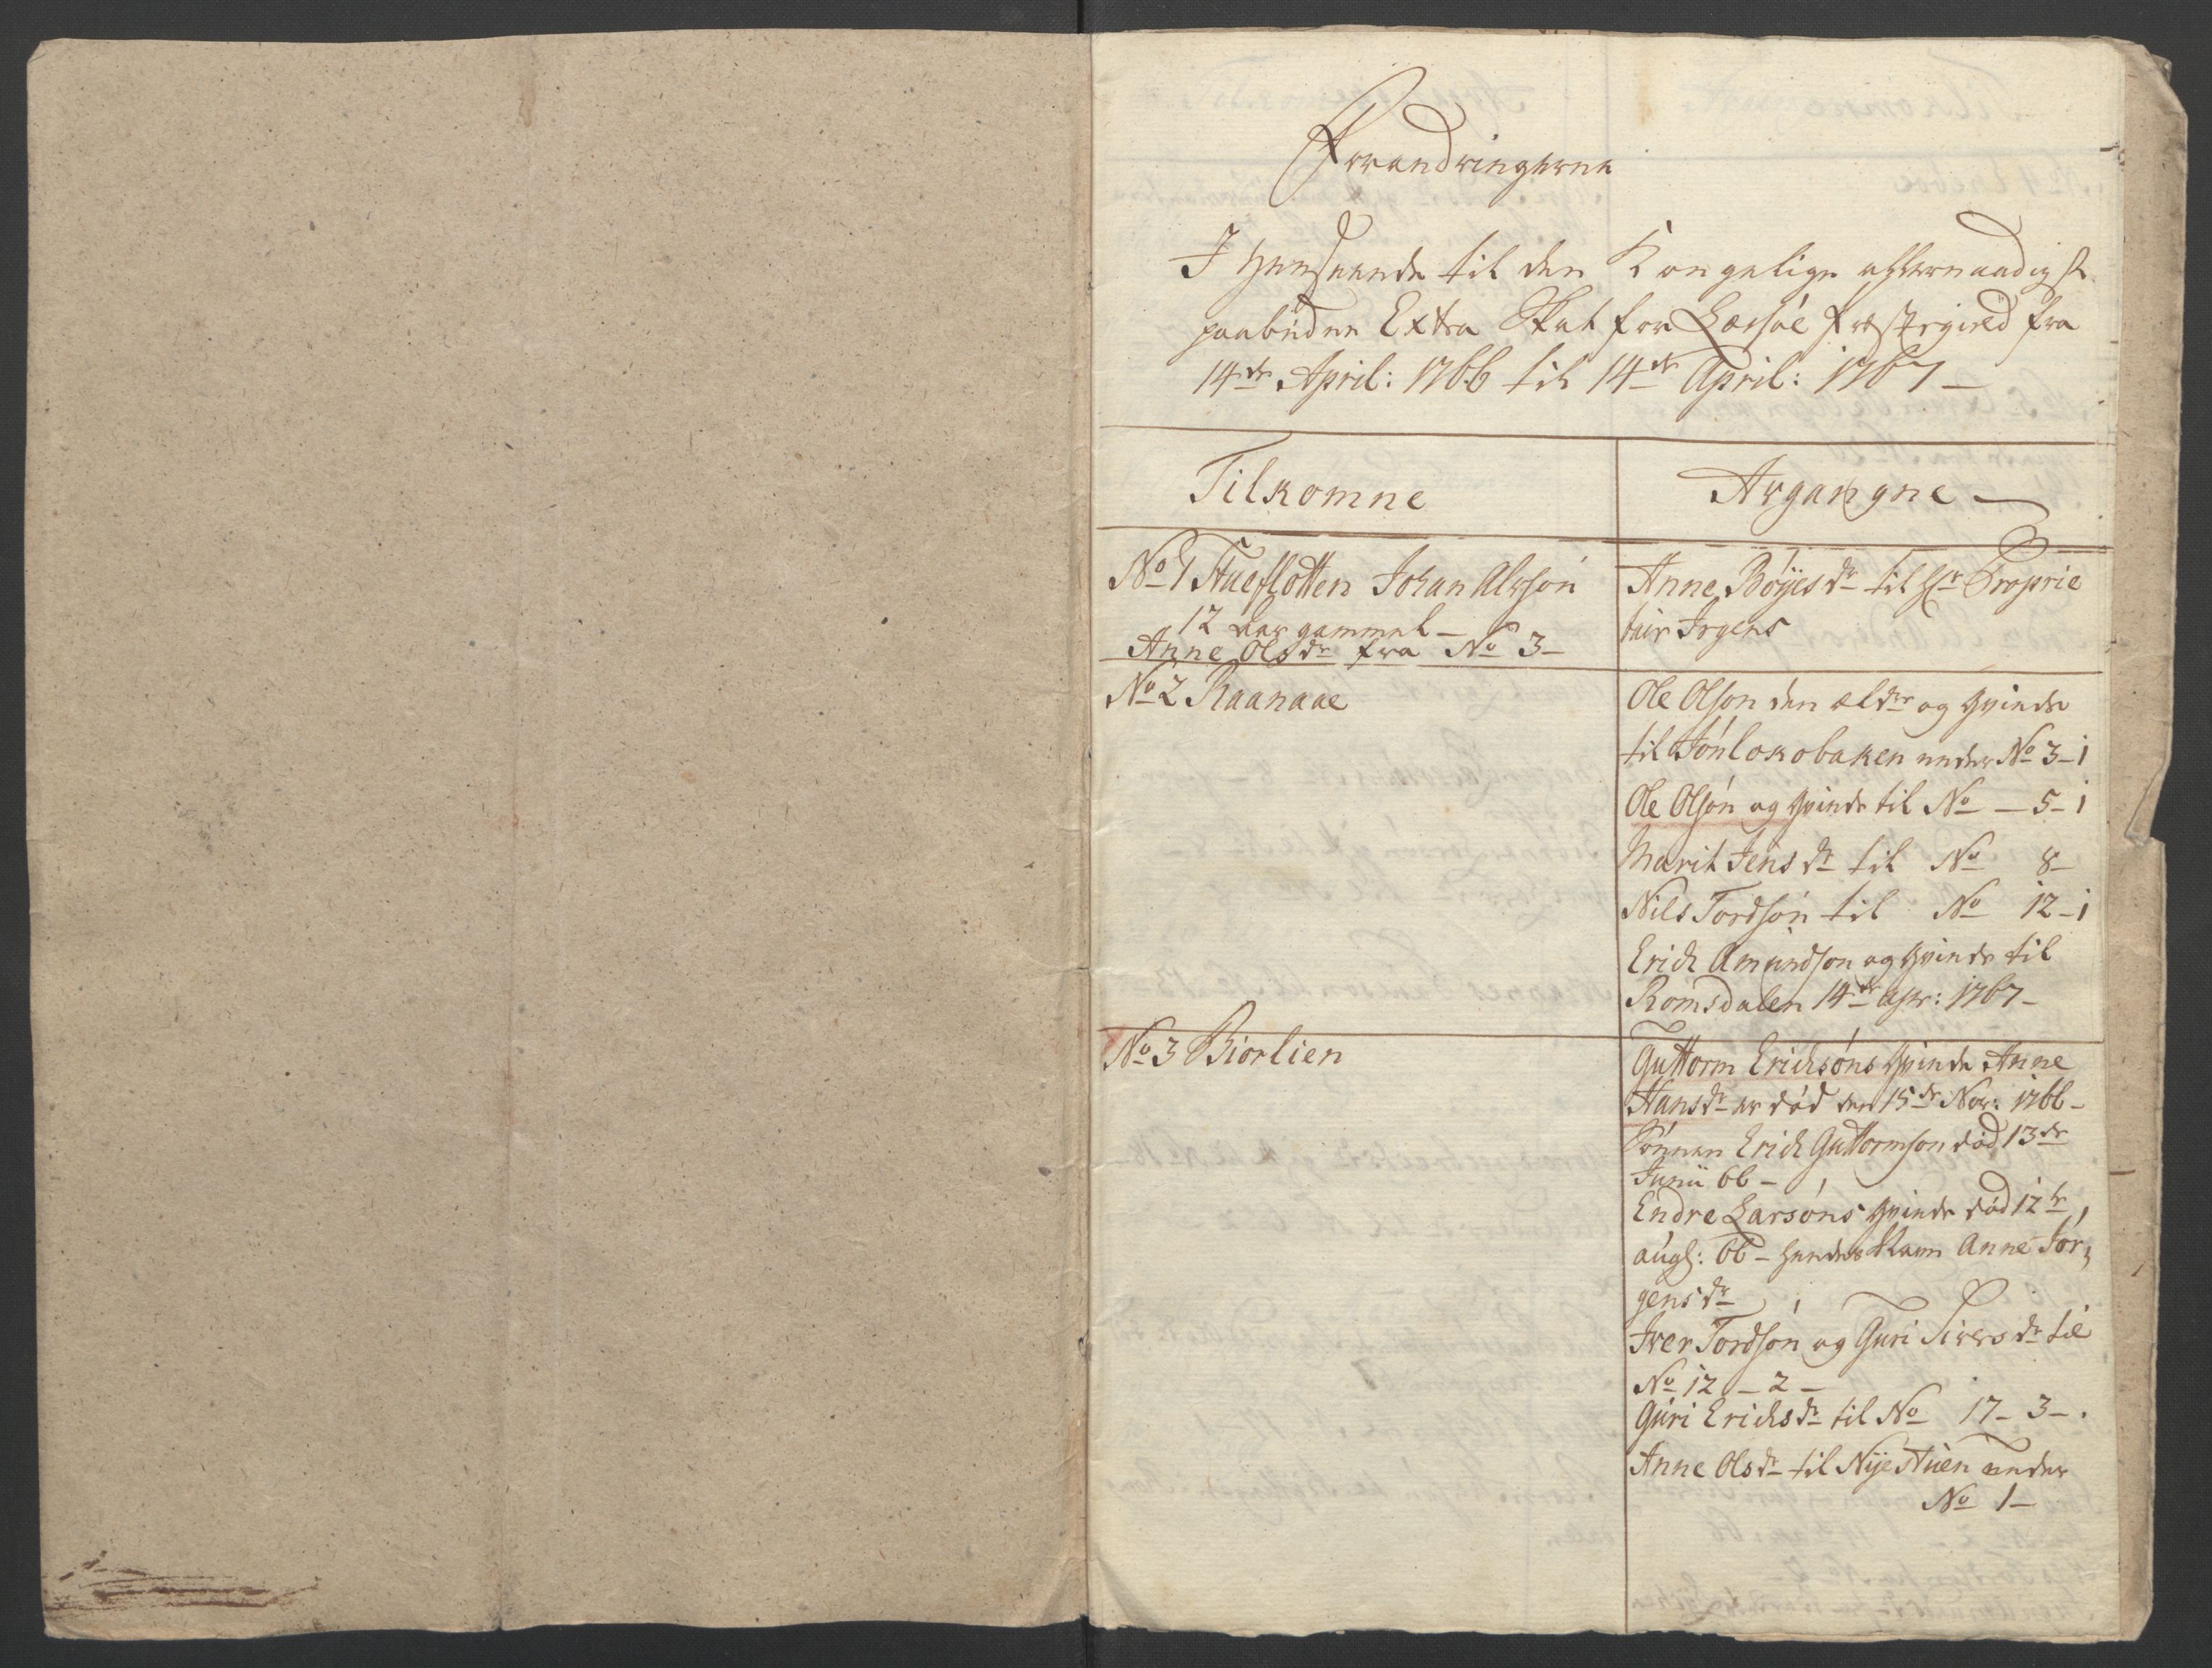 Forandringerne
I Henseende til den Kongelige allernaadigst
paabudne Extra Skat for Læssøe Præstegield fra
14de April: 1766 til 14de April: 1767 —
Tilkomne
Afgangne —
No 1 Stueflotten Johan Alvson
12 aar gammel —
Anne Olsdr fra No 3 —
Anne Bøyesdr til Hr Proprie
tair Irgens
No 2 Raanaae
Ole Olson den ældre og Qvinde
til Jonlokobaken under No 3 – 1
Ole Olson og Qvinde til No — 5 – 1
Marit Jensdr til No 8 —
Nils Tordson til No 12 – 1
Erich Amundson og Qvinde til
Romsdalen 14de Apr: 1767 —
No 3 Biorlien
Guttorm Erichsøns Qvinde Anne
Hansdr er død den 15de Nov: 1766 —
Sønnen Erich Guttormson død 13de
Junii 66 —
Endre Larsons Qvinde død 12te
augs: 66 – hendes Navn Anne Jør,
gensdr
Iver Tordson og Guri Siversdr til
No 12 — 2 —
Guri Erichsdr til No 17 – 3 —
Anne Olsdr til Nyestuen under
No 1 —